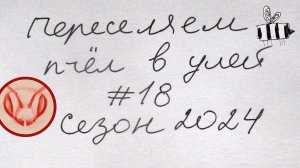 Переселяем
пчёл в улей
#18
Сезон 2024